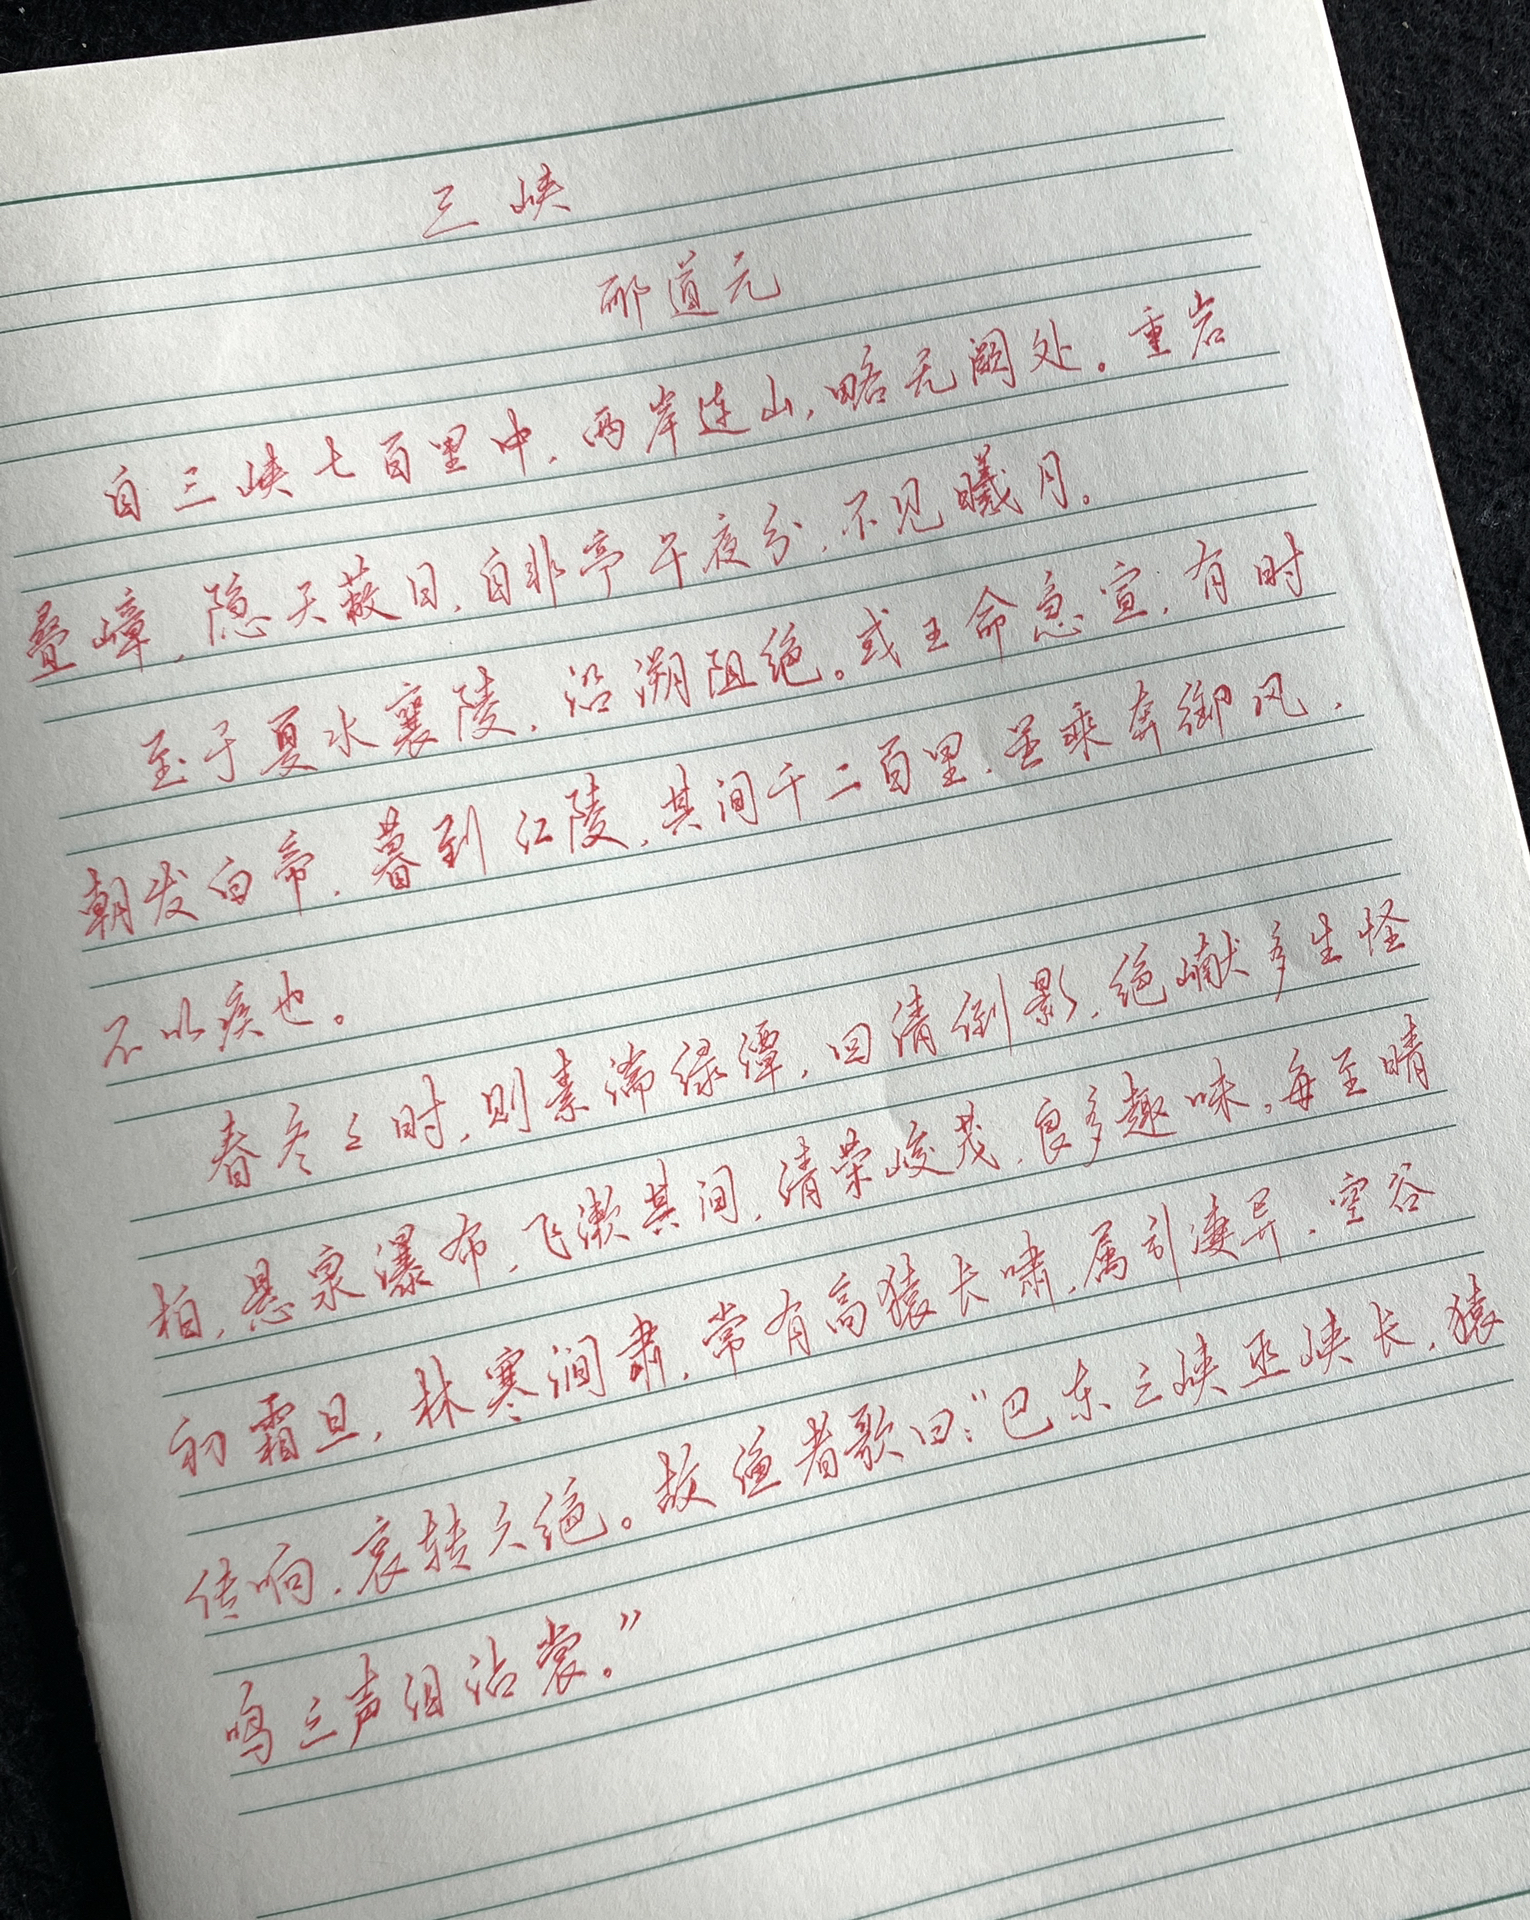 三峡
郦道元
自三峡七百里中，两岸连山，略无阙处。重岩
叠嶂，隐天蔽日，自非亭午夜分，不见曦月。
至于夏水襄陵，沿溯阻绝。或王命急宣，有时
朝发白帝，暮到江陵，其间千二百里，虽乘奔御风，
不以疾也。
春冬之时，则素湍绿潭，回清倒影，绝巘多生怪
柏，悬泉瀑布，飞漱其间，清荣峻茂，良多趣味。每至晴
初霜旦，林寒涧肃，常有高猿长啸，属引凄异，空谷
传响，哀转久绝。故渔者歌曰："巴东三峡巫峡长，猿
鸣三声泪沾裳。"